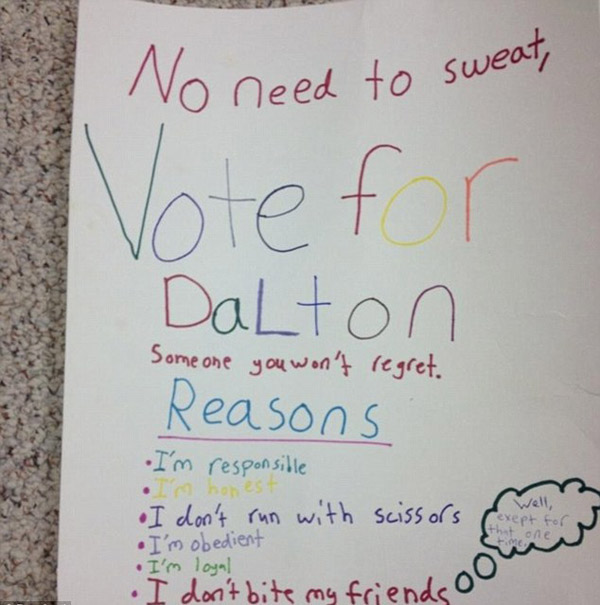 No need to sweat,
Vote for
DaLton
Someone you won't regret.
Reasons
•I'm responsible
•I'm honest
•I don't run with scissors
•I'm obedient
•I'm loyal
•I don't bite my friends
Well,
exept for
that one
time.